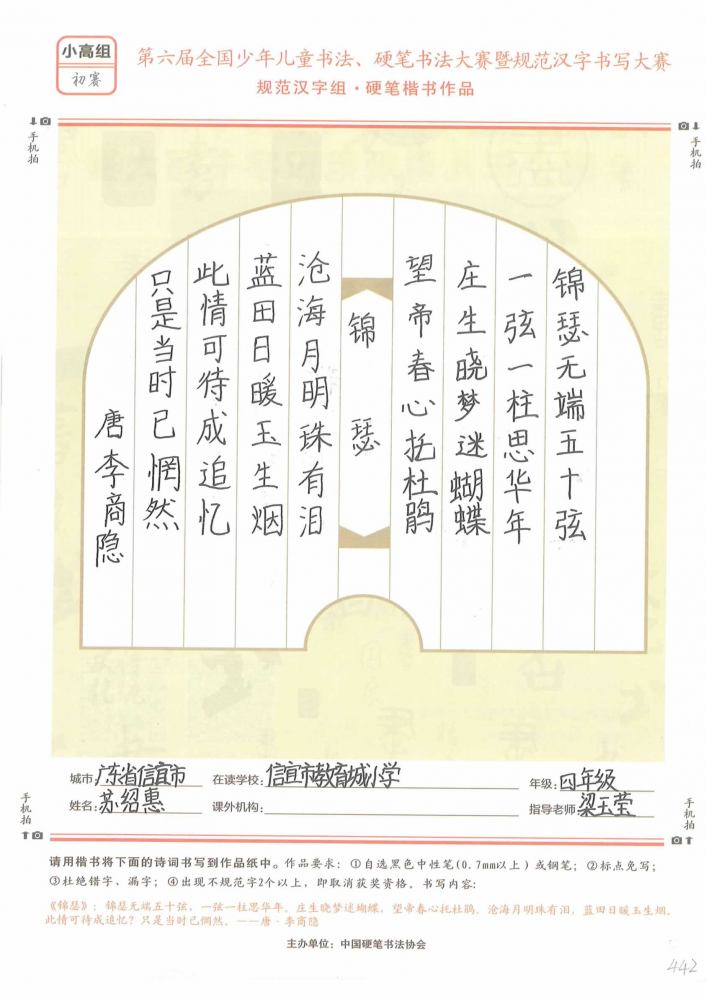 小高组
初赛
第六届全国少年儿童书法、硬笔书法大赛暨规范汉字书写大赛
规范汉字组·硬笔楷书作品
手机拍
手机拍
锦瑟无端五十弦
一弦一柱思华年
庄生晓梦迷蝴蝶
望帝春心托杜鹃
锦瑟
沧海月明珠有泪
蓝田日暖玉生烟
此情可待成追忆
只是当时已惘然
唐李商隐
城市:广东省信宜市 在读学校:信宜市教育城小学 年级:四年级
姓名:苏绍惠 课外机构: 指导老师:梁玉莹
手机拍
手机拍
请用楷书将下面的诗词书写到作品纸中。作品要求:①自选黑色中性笔(0.7mm以上)或钢笔;②标点免写;
③杜绝错字、漏字;④出现不规范字2个以上,即取消获奖资格。书写内容:
《锦瑟》:锦瑟无端五十弦,一弦一柱思华年。庄生晓梦迷蝴蝶,望帝春心托杜鹃。沧海月明珠有泪,蓝田日暖玉生烟。
此情可待成追忆?只是当时已惘然。——唐·李商隐
主办单位:中国硬笔书法协会
442